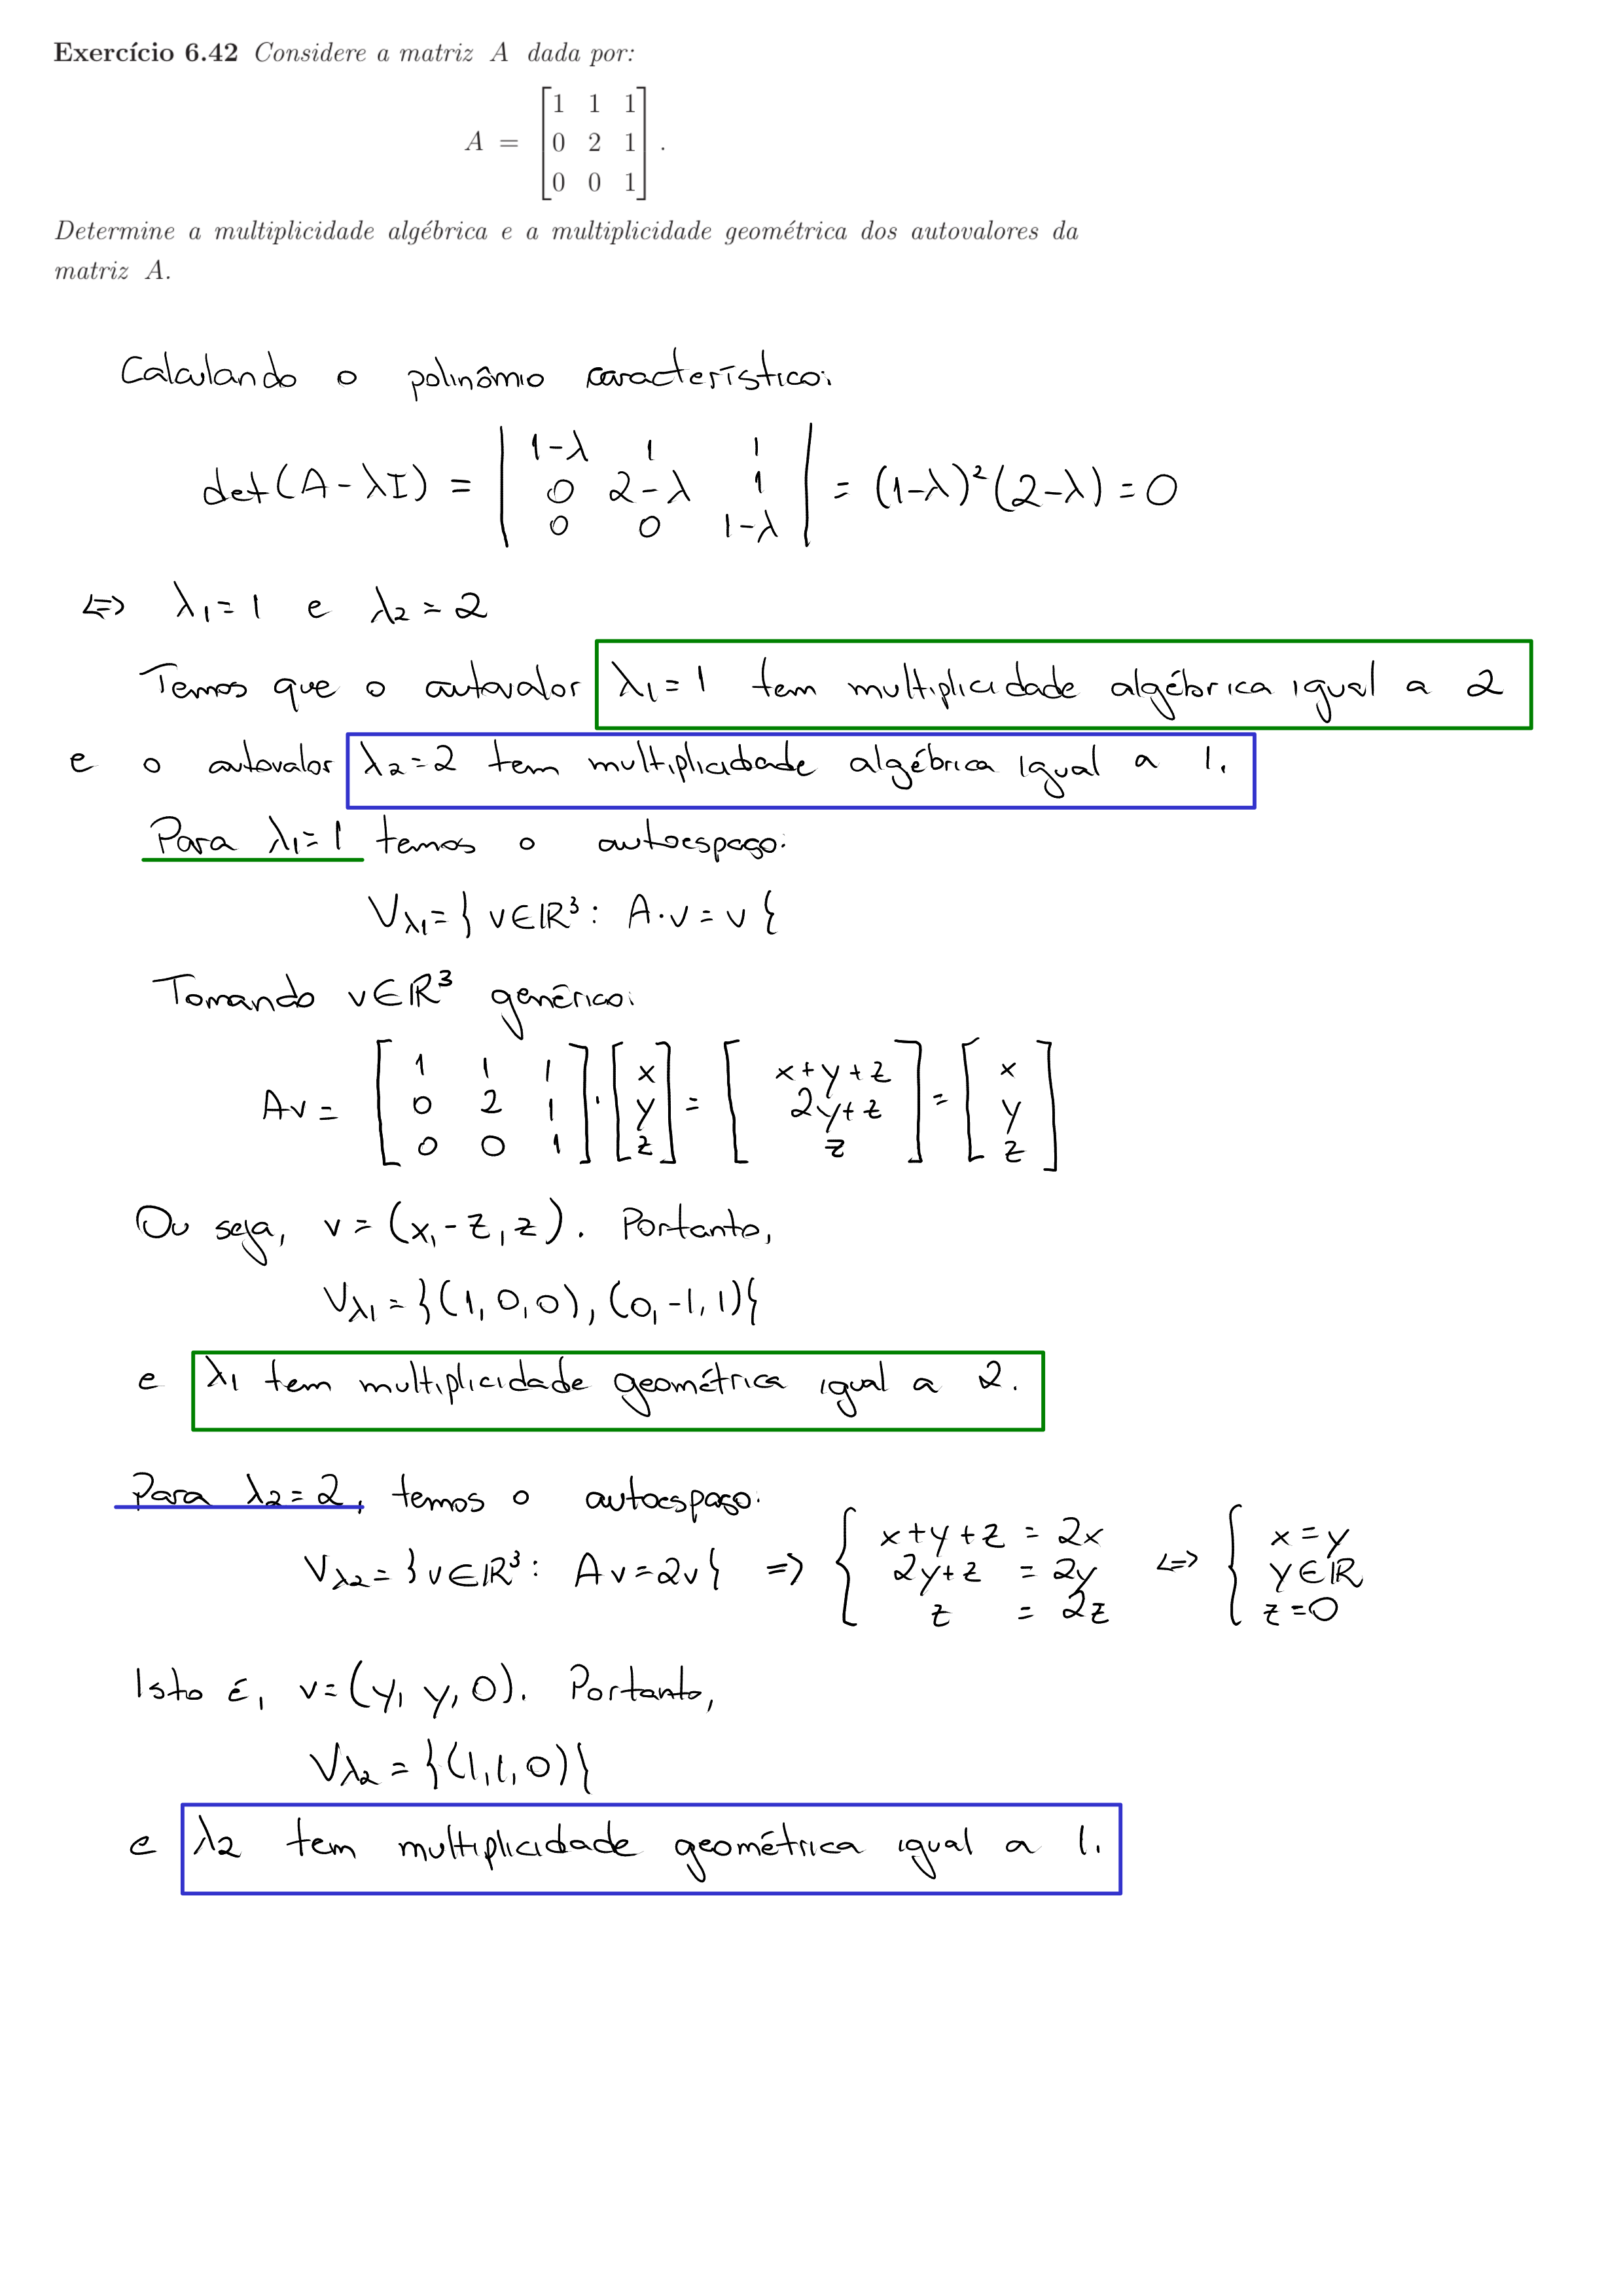 Exercício 6.42 Considere a matriz A dada por:
A = [1 1 1
0 2 1
0 0 1] .
Determine a multiplicidade algébrica e a multiplicidade geométrica dos autovalores da
matriz A.
Calculando o polinômio característico:
det(A-λI) = | 1-λ 1 1
0 2-λ 1
0 0 1-λ | = (1-λ)²(2-λ) = 0
⇔ λ₁=1 e λ₂=2
Temos que o autovalor λ₁=1 tem multiplicidade algébrica igual a 2
e o autovalor λ₂=2 tem multiplicidade algébrica igual a 1.
Para λ₁=1 temos o autoespaço:
Vλ₁={ v∈ℝ³: A·v=v }
Tomando v∈ℝ³ genérico:
Av = [1 1 1
0 2 1
0 0 1] · [x
y
z] = [x+y+z
2y+z
z] = [x
y
z]
Ou seja, v=(x,-z,z). Portanto,
Vλ₁={(1,0,0),(0,-1,1)}
e λ₁ tem multiplicidade geométrica igual a 2.
Para λ₂=2, temos o autoespaço:
Vλ₂={v∈ℝ³: Av=2v} ⇒ { x+y+z = 2x
2y+z = 2y
z = 2z ⇔ { x=y
y∈ℝ
z=0
Isto é, v=(y,y,0). Portanto,
Vλ₂={(1,1,0)}
e λ₂ tem multiplicidade geométrica igual a 1.